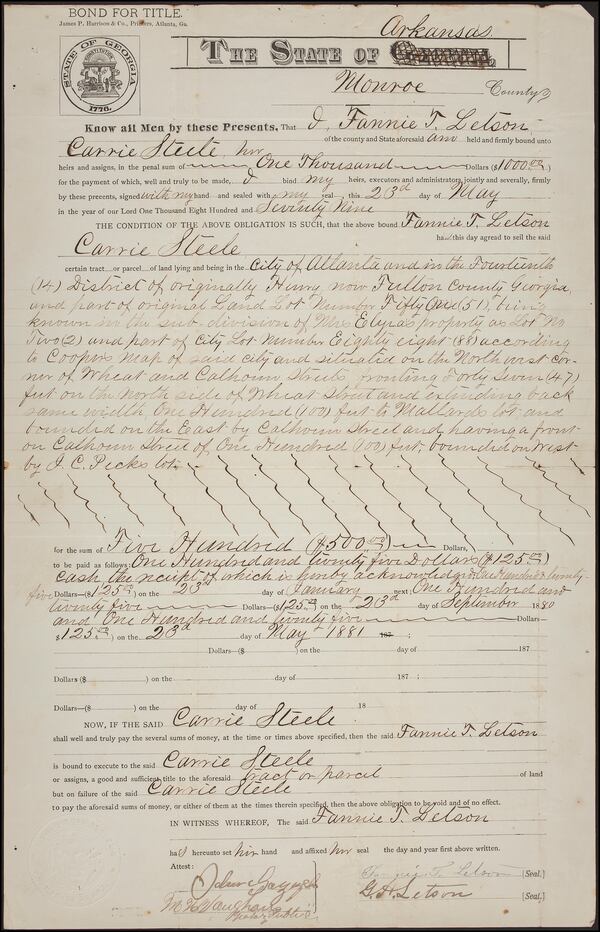 BOND FOR TITLE.
James P. Harrison & Co., Printers, Atlanta, Ga.
STATE OF GEORGIA
1776.
Arkansas
THE STATE OF
Monroe County
Know all Men by these Presents, That I, Fannie T. Letson
of the county and State aforesaid am held and firmly bound unto
Carrie Steele, her
heirs and assigns, in the penal sum of One Thousand Dollars ($1000.00)
for the payment of which, well and truly to be made, I bind my heirs, executors and administrators, jointly and severally, firmly
by these presents, signed with my hand and sealed with my seal, this 23d day of May
in the year of our Lord One Thousand Eight Hundred and Seventy Nine
THE CONDITION OF THE ABOVE OBLIGATION IS SUCH, that the above bound Fannie T. Letson
has this day agreed to sell the said
Carrie Steele
certain tract or parcel of land lying and being in the City of Atlanta and in the Fourteenth
(14) District of originally Henry, now Fulton County Georgia,
and part of original Land Lot Number Fifty One (51), being
known in the sub-division of Mrs Elyea's property as Lot No
Two (2) and part of City Lot Number Eighty eight (88) according
to Coopers Map of said city and situated on the North west cor-
ner of Wheat and Calhoun Streets fronting Forty Seven (47)
feet on the North side of Wheat Street and extending back
same width One Hundred (100) feet to Mallards lot and
bounded on the East by Calhoun Street and having a front
on Calhoun Street of One Hundred (100) feet, bounded on West
by J. C. Pecks lot.
for the sum of Five Hundred ($500.00) Dollars,
to be paid as follows: One Hundred and twenty five Dollars ($125.00)
cash, the receipt of which is hereby acknowledged, One Hundred & twenty-
five Dollars ($125.00) on the 23d day of January next One Hundred and
twenty five Dollars ($125.00) on the 23d day of September 1880
and One Hundred and twenty five Dollars
$125.00) on the 23d day of May 1881 187 ;
Dollars ($ ) on the day of 187
Dollars ($ ) on the day of 187 ;
Dollars ($ ) on the day of 18
NOW, IF THE SAID Carrie Steele
shall well and truly pay the several sums of money, at the time or times above specified, then the said Fannie T. Letson
is bound to execute to the said Carrie Steele
or assigns, a good and sufficient title to the aforesaid tract or parcel of land
but on failure of the said Carrie Steele
to pay the aforesaid sums of money, or either of them at the times therein specified, then the above obligation to be void and of no effect.
IN WITNESS WHEREOF, The said Fannie T. Letson
has hereunto set her hand and affixed her seal the day and year first above written.
Attest:
Fannie T. Letson [Seal.]
G. H. Letson [Seal.]
Notary Public